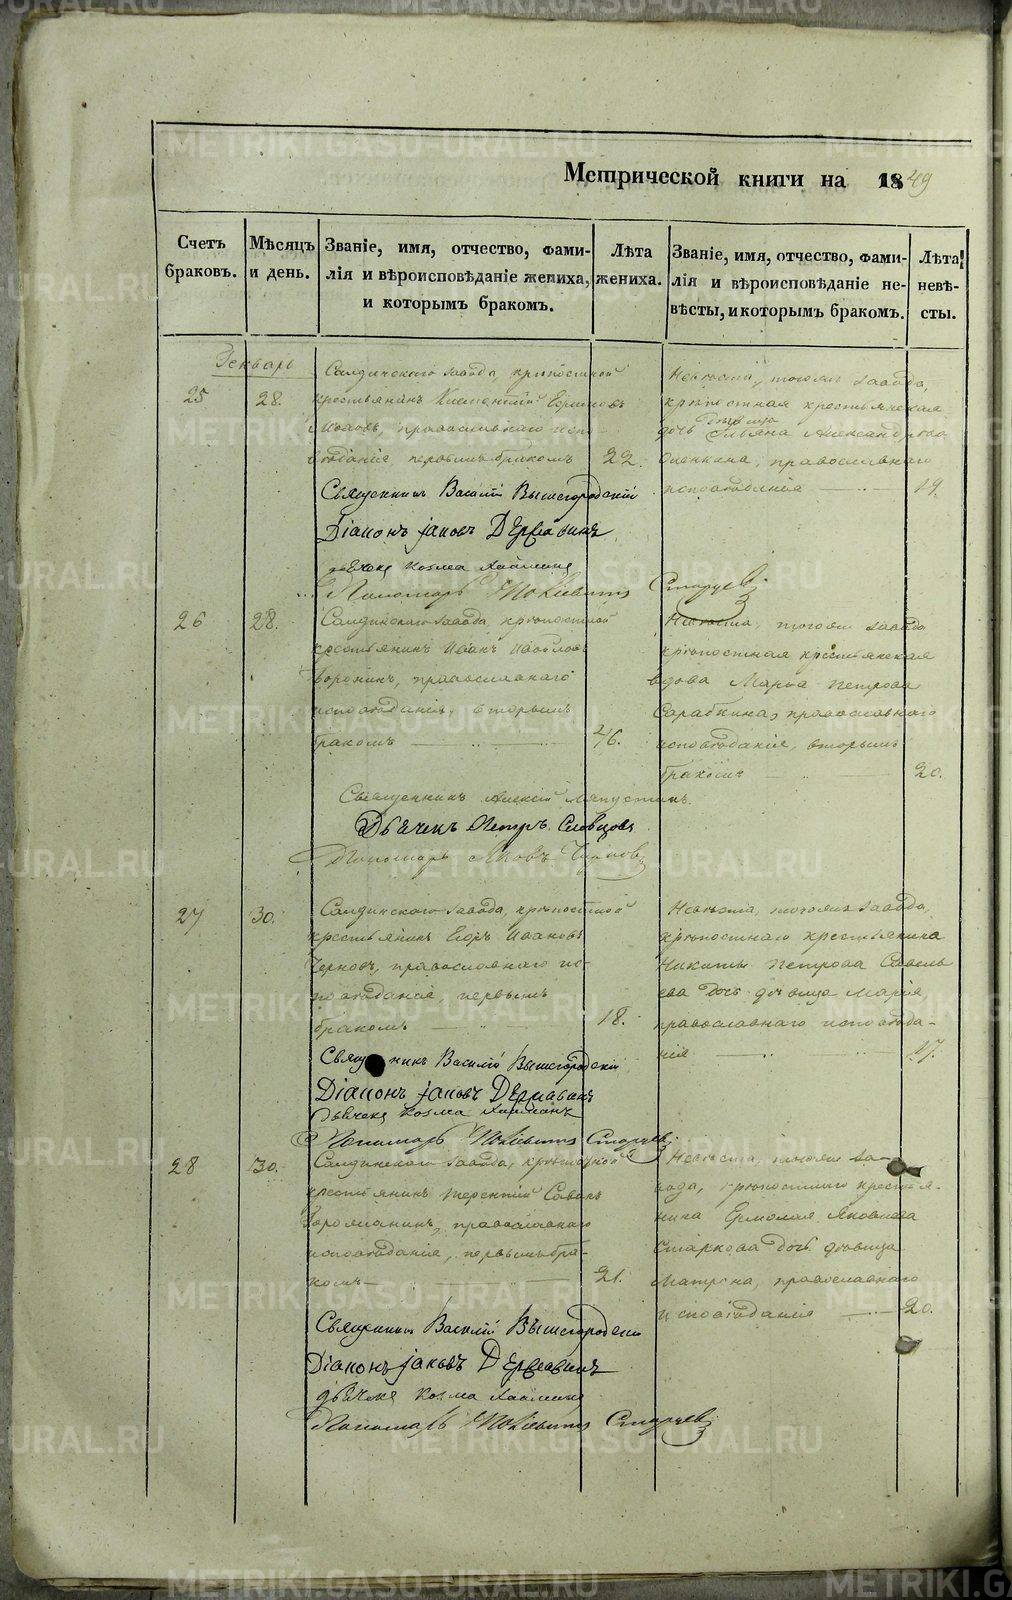 Метрической книги на 1849
Счетъ браковъ.
Мѣсяцъ и день.
Званіе, имя, отчество, фами-
лія и вѣроисповѣданіе жениха,
и которымъ бракомъ.
Лѣта жениха.
Званіе, имя, отчество, фами-
лія и вѣроисповѣданіе не-
вѣсты, и которымъ бракомъ.
Лѣта невѣ-
сты.
25
28.
Салдинскаго завода, крѣпостной
крестьянинъ
православнаго испо-
вѣданія первымъ бракомъ
22.
Невѣста, тогожъ завода,
крѣпостная крестьянская
дѣвица
дочь Александрова
православнаго
исповѣданія
19.
Священникъ Василій Вышегородскій
Діаконъ Іаковъ Державинъ
Козма
Пономарь Старцевъ
26
28.
Салдинскаго завода, крѣпостной
крестьянинъ Иванъ
Воронинъ, православнаго
исповѣданія, вторымъ
бракомъ
26.
Невѣста, тогожъ завода
крѣпостная крестьянская
вдова Марѳа Петрова
Сарабкина, православнаго
исповѣданія, вторымъ
бракомъ
20.
Священникъ Алексій Ляпустинъ.
Дьячекъ Петръ Словцовъ
Пономарь Іаковъ
27
30.
Салдинскаго завода, крѣпостной
крестьянинъ Егоръ Ивановъ
Черновъ, православнаго ис-
повѣданія, первымъ
бракомъ
18.
Невѣста, тогожъ завода,
крѣпостнаго крестьянина
Никиты Петрова Савель
ева дочь дѣвица Марія
православнаго исповѣда-
нія
17.
Священникъ Василій Вышегородскій
Діаконъ Іаковъ Державинъ
Козма
Пономарь Старцевъ
28
30.
Салдинскаго завода, крѣпостной
крестьянинъ Терентій Савинъ
православнаго
исповѣданія, первымъ бра-
комъ
21.
Невѣста, тогожъ за-
вода, крѣпостнаго крестья-
нина Ермолая Яковлева
Старкова дочь дѣвица
Матрена, православнаго
исповѣданія
20.
Священникъ Василій Вышегородскій
Діаконъ Іаковъ Державинъ
Козма
Пономарь Старцевъ
METRIKI.GASO-URAL.RU